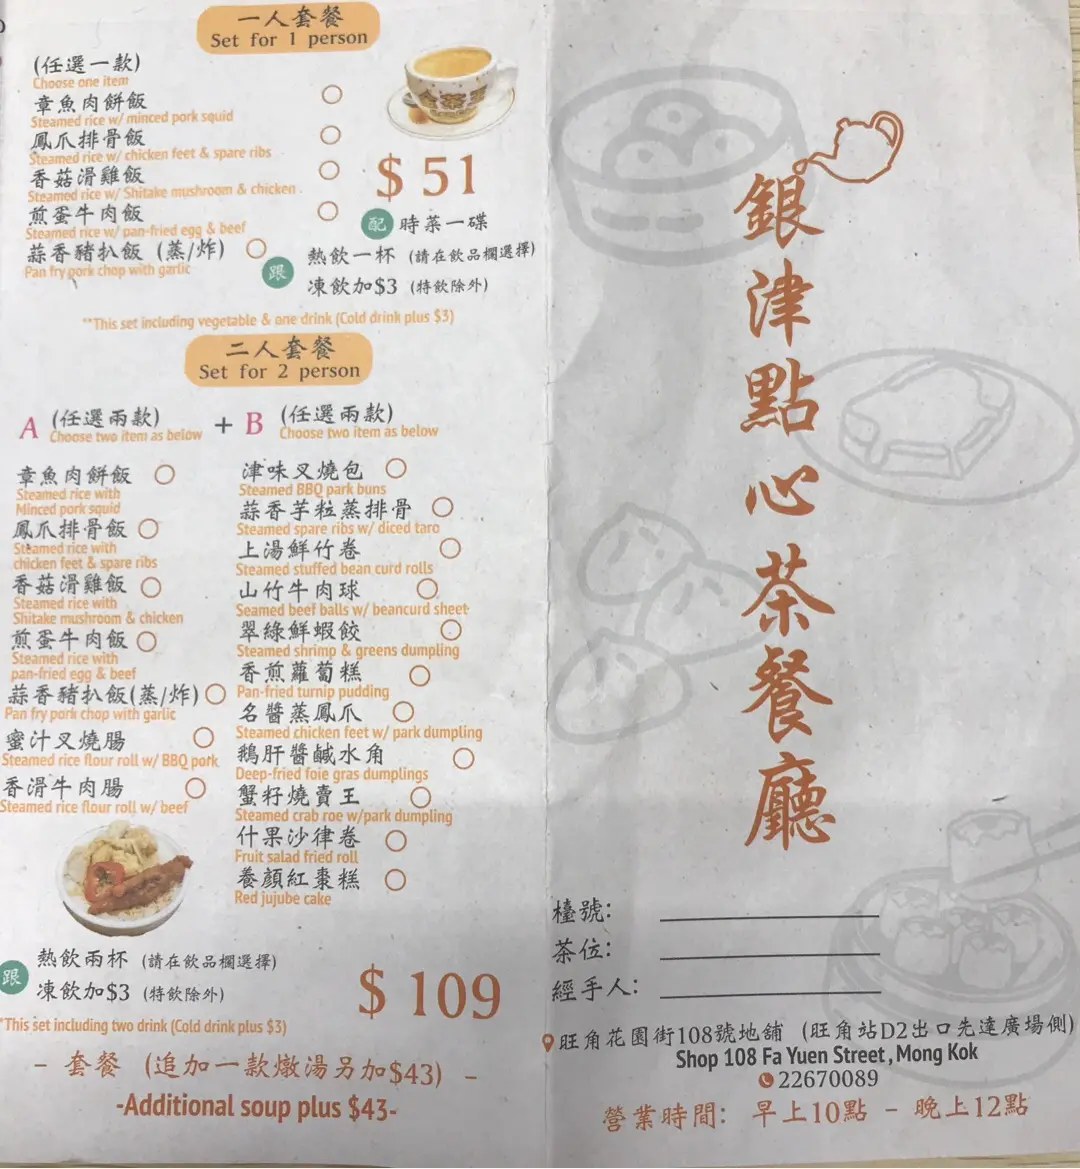 一人套餐
Set for 1 person
(任選一款)
Choose one item
章魚肉餅飯
Steamed rice w/ minced pork squid
鳳爪排骨飯
Steamed rice w/ chicken feet & spare ribs
香菇滑雞飯
Steamed rice w/ Shitake mushroom & chicken
煎蛋牛肉飯
Steamed rice w/ pan-fried egg & beef
蒜香豬扒飯 (蒸/炸)
Pan fry pork chop with garlic
$ 51
配 時菜一碟
跟 熱飲一杯 (請在飲品欄選擇)
凍飲加$3 (特飲除外)
**This set including vegetable & one drink (Cold drink plus $3)
二人套餐
Set for 2 person
A (任選兩款) + B (任選兩款)
Choose two item as below
Choose two item as below
章魚肉餅飯
Steamed rice with
Minced pork squid
鳳爪排骨飯
Steamed rice with
chicken feet & spare ribs
香菇滑雞飯
Steamed rice with
Shitake mushroom & chicken
煎蛋牛肉飯
Steamed rice with
pan-fried egg & beef
蒜香豬扒飯(蒸/炸)
Pan fry pork chop with garlic
蜜汁叉燒腸
Steamed rice flour roll w/ BBQ pork
香滑牛肉腸
Steamed rice flour roll w/ beef
津味叉燒包
Steamed BBQ park buns
蒜香芋粒蒸排骨
Steamed spare ribs w/ diced taro
上湯鮮竹卷
Steamed stuffed bean curd rolls
山竹牛肉球
Seamed beef balls w/ beancurd sheet
翠綠鮮蝦餃
Steamed shrimp & greens dumpling
香煎蘿蔔糕
Pan-fried turnip pudding
名醬蒸鳳爪
Steamed chicken feet w/ park dumpling
鵝肝醬鹹水角
Deep-fried foie gras dumplings
蟹籽燒賣王
Steamed crab roe w/park dumpling
什果沙律卷
Fruit salad fried roll
養顏紅棗糕
Red jujube cake
跟 熱飲兩杯 (請在飲品欄選擇)
凍飲加$3 (特飲除外)
$ 109
*This set including two drink (Cold drink plus $3)
- 套餐 (追加一款燉湯另加$43) -
-Additional soup plus $43-
銀津點心茶餐廳
檯號:
茶位:
經手人:
旺角花園街108號地舖 (旺角站D2出口先達廣場側)
Shop 108 Fa Yuen Street, Mong Kok
22670089
營業時間: 早上10點 - 晚上12點